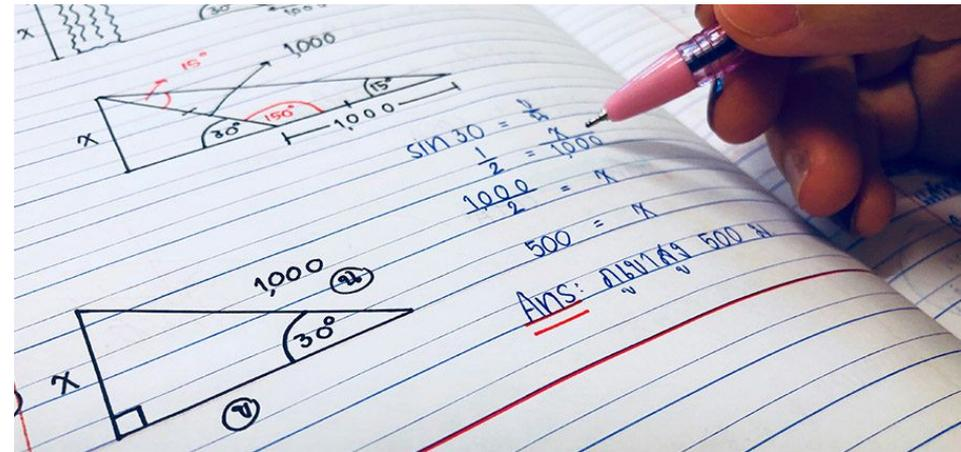 x
30°
1,000
15°
1,000
x
30°
150°
15°
1,000
sin 30 =
1/2 = x/1,000
1,000/2 = x
500 = x
Ans: ภูเขาสูง 500 ม
1,000
x
30°